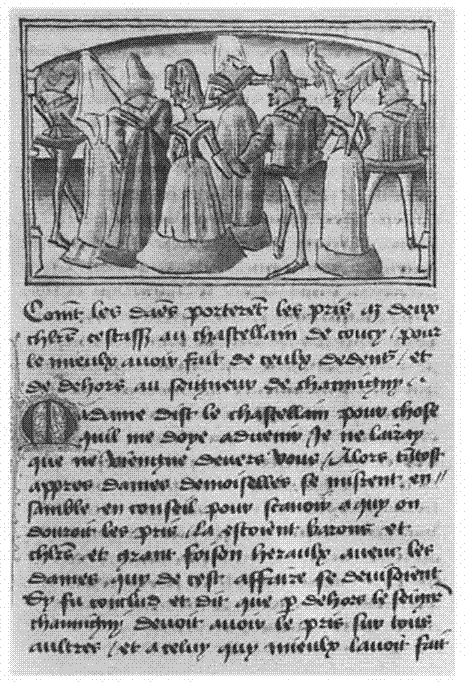 Coment les dames porterent les pris aux deux
chlrs cestassr au chastellain de coucy / pour
le mieulx avoir fait de ceulx dedens / et
de dehors au seigneur de chauuigny .
Madame dist le chastellain pour chose
quil me doye aduenir Je ne lairay
que ne viengne deuers vous / Alors tātost
appres dames demoiselles se misrent en //
samble en conseil pour scauoir a quy on
donroit les pris / la estoient barons et
chlrs et grant foison heraulx aueuc les
dames quy de cest affaire se deuisoient
Sy fu conclud et dit que p dehors le seignr
chauuigny deuoit auoir le pris sur tous
aultres / et a celuy quy mieulx lauoit fait